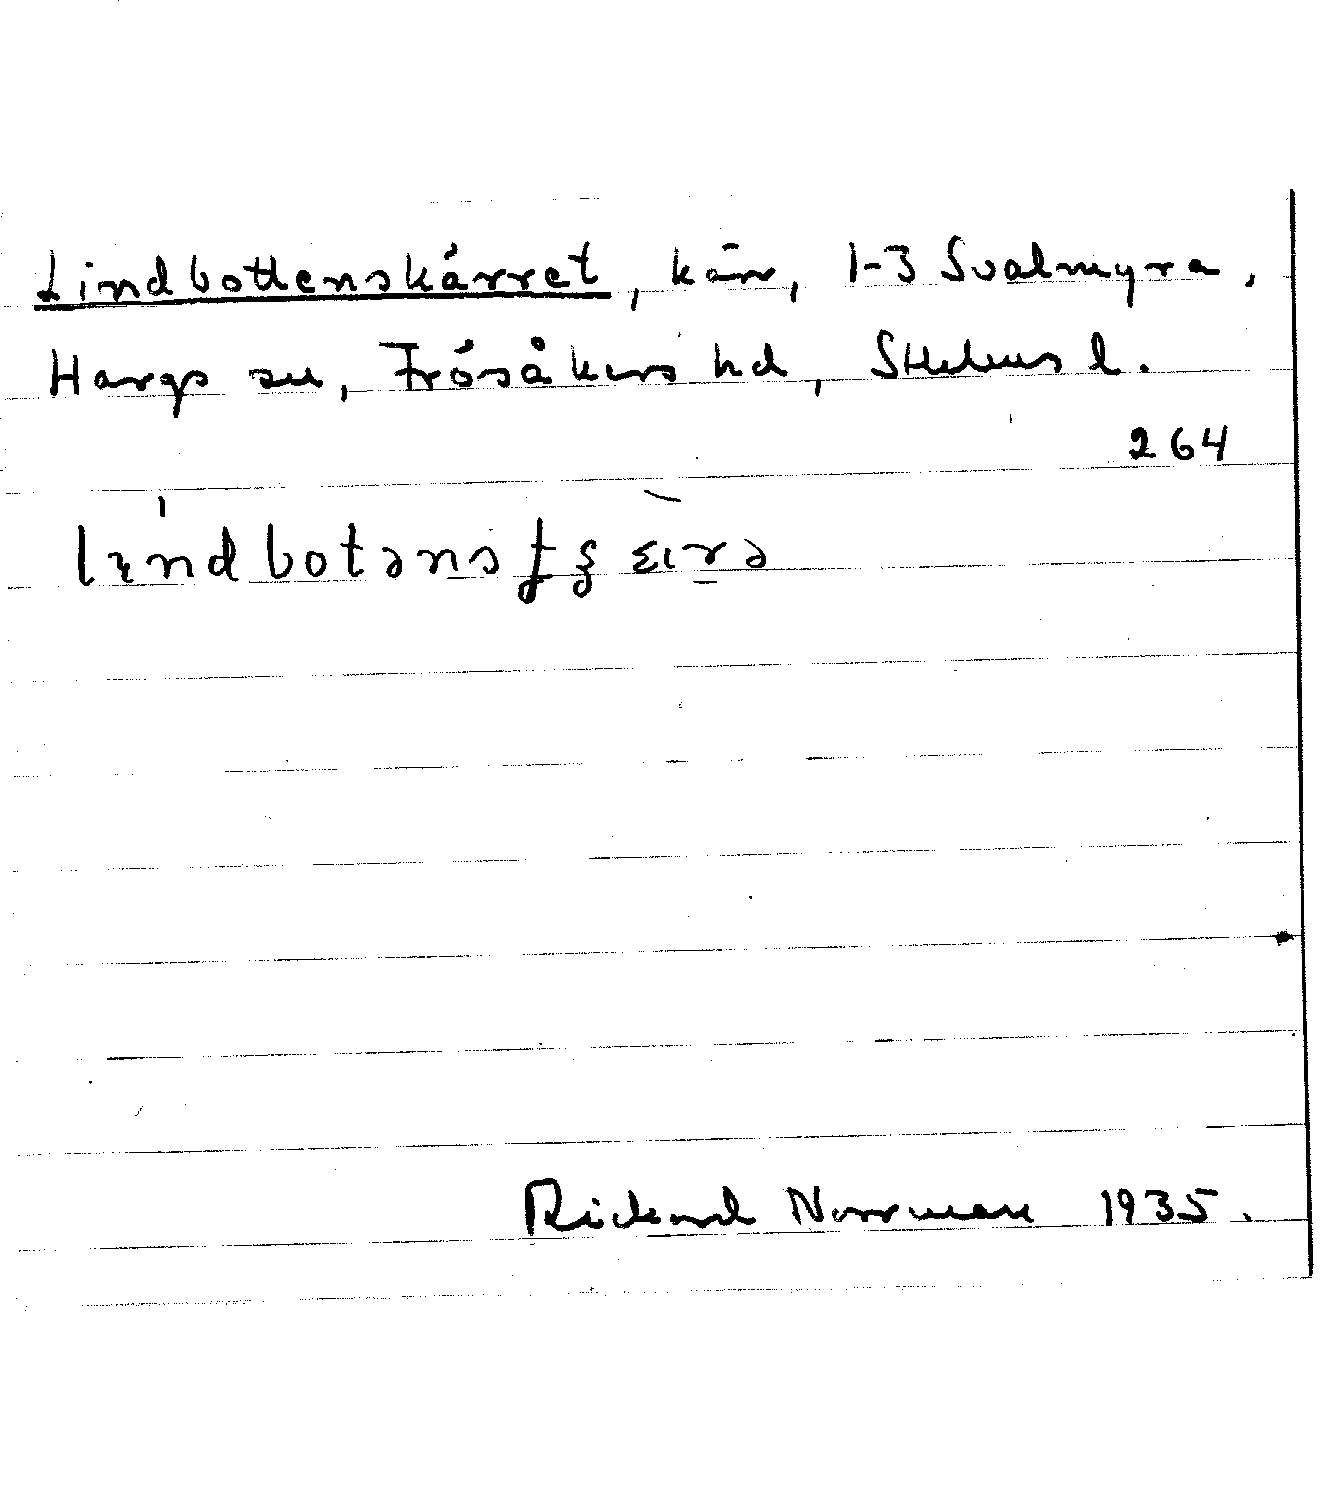 Lindbottenskärret, kärr, 1-3 Svalmyra,
Hargs sn, Frösåkers hd, Sthlms l.
264
Rickard Norrman 1935.